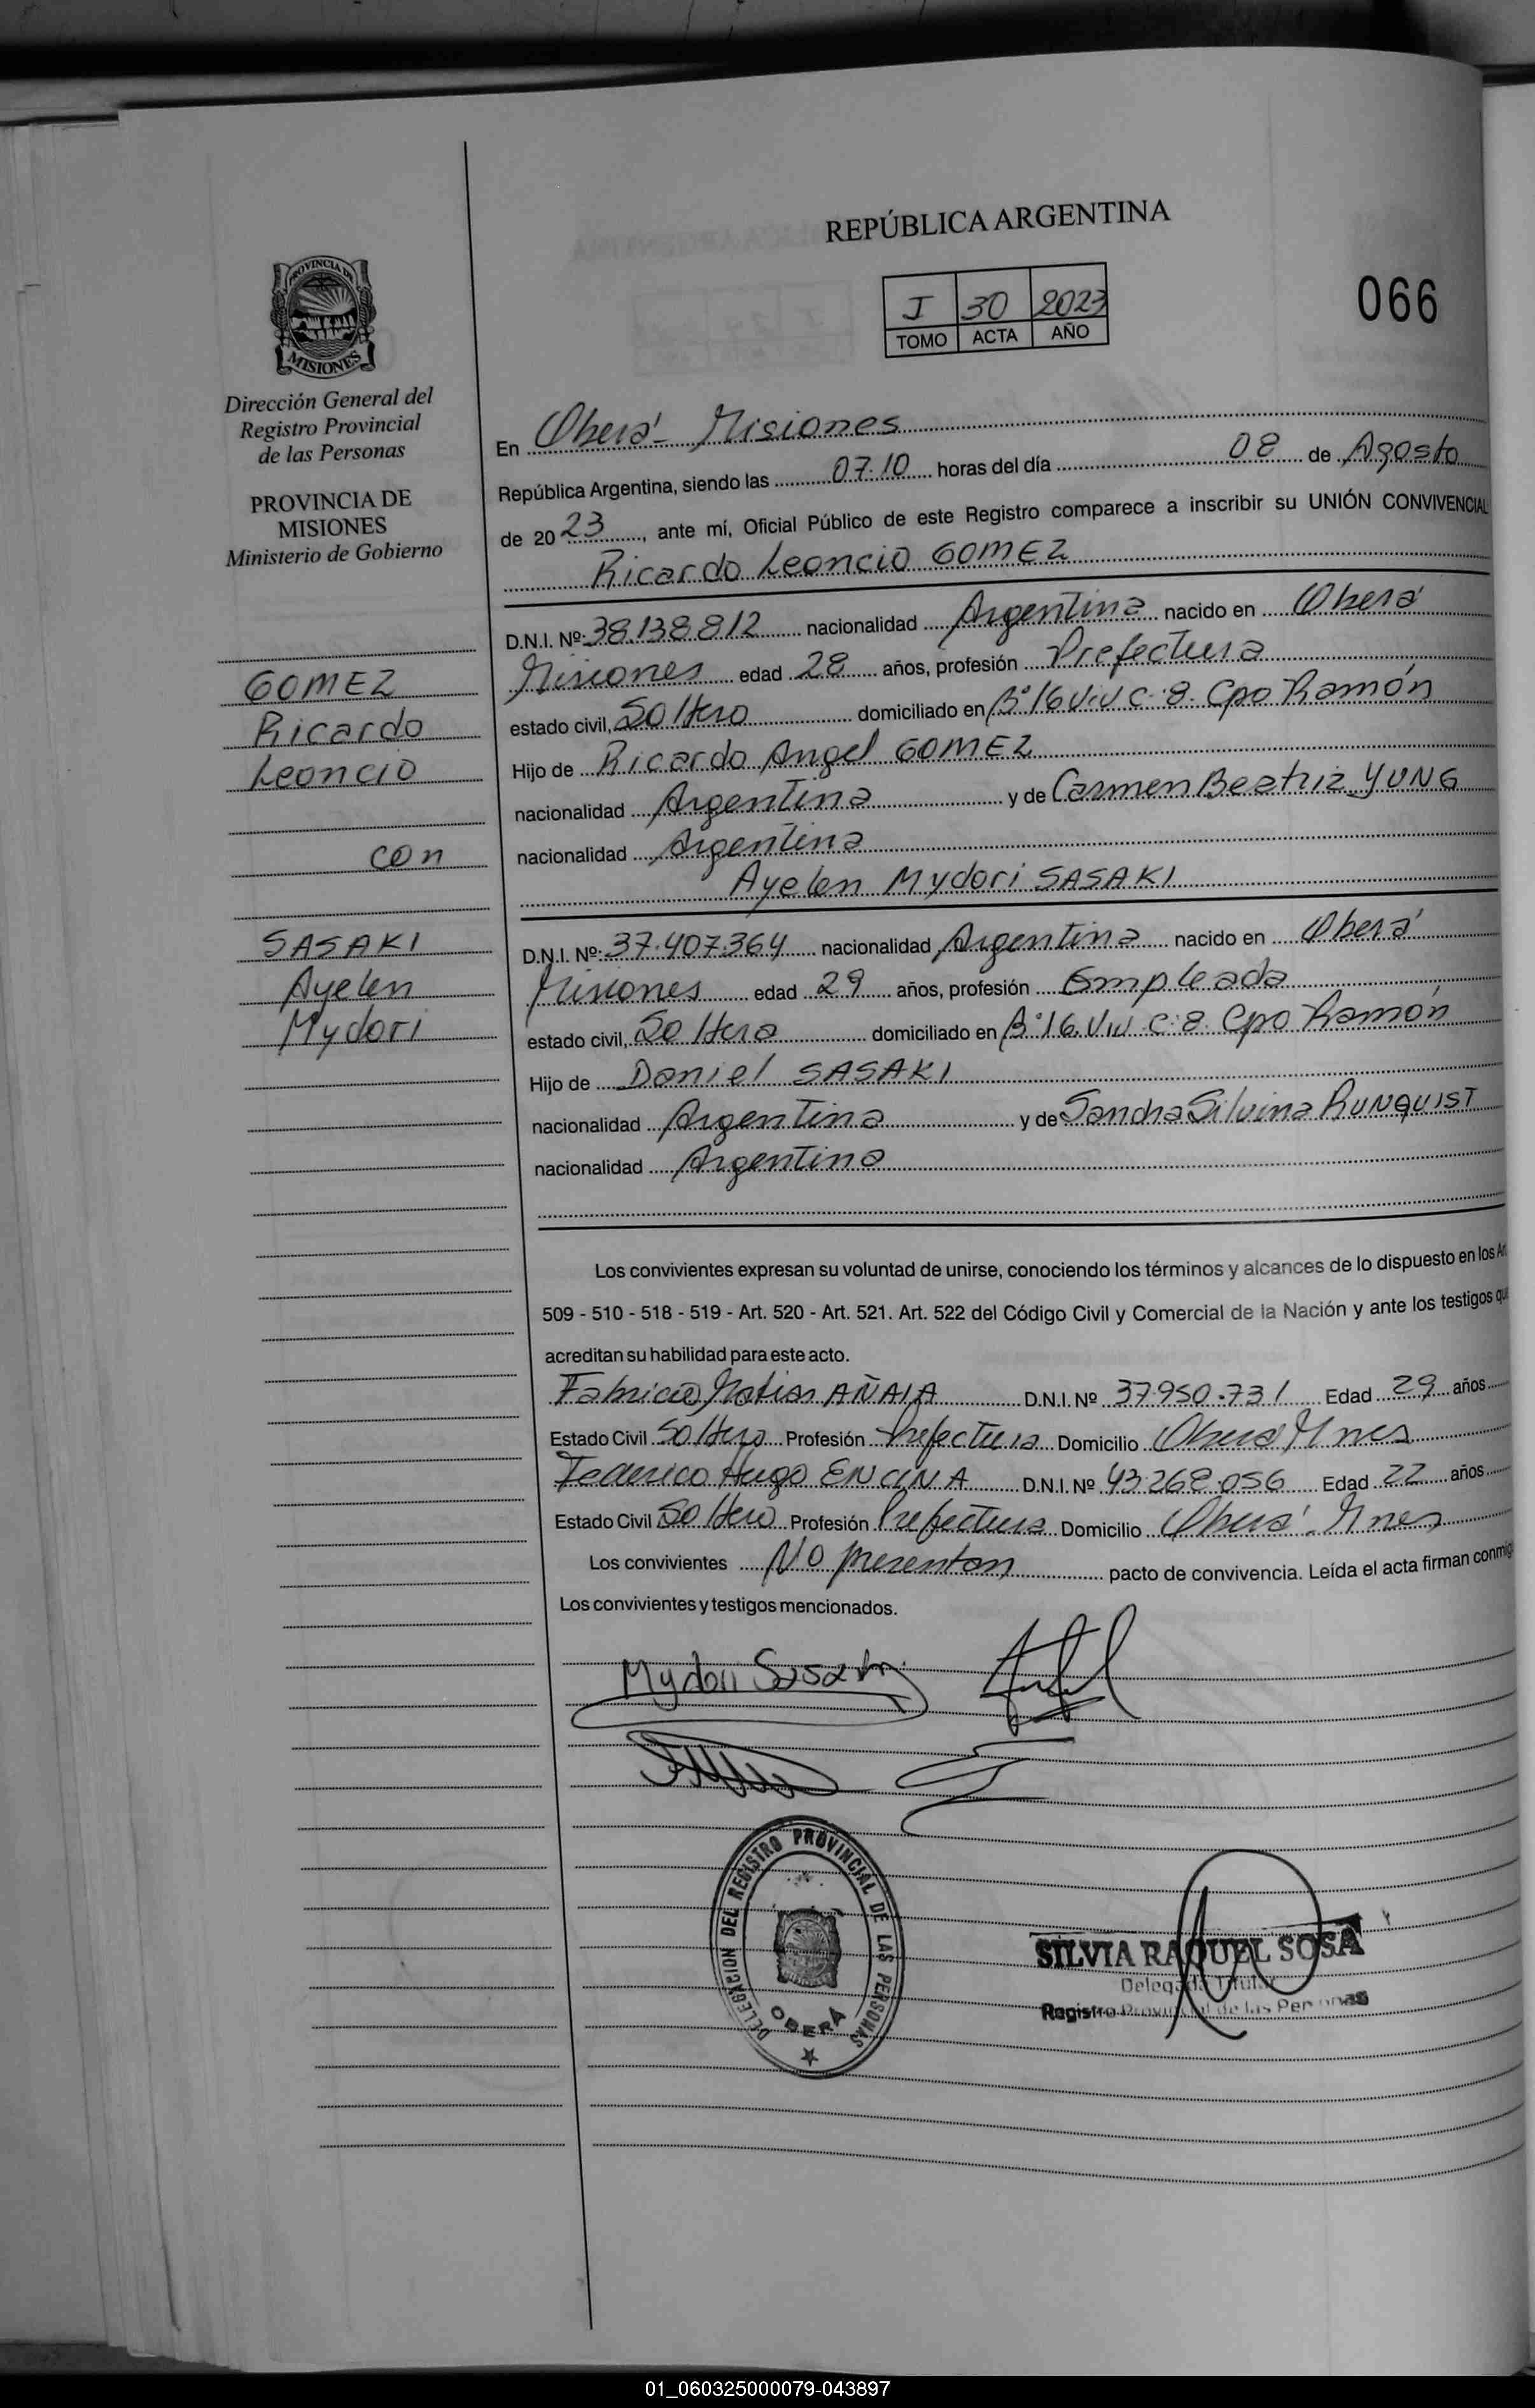 REPÚBLICA ARGENTINA
I 30 2023
TOMO ACTA AÑO
066
PROVINCIA DE
MISIONES
Dirección General del
Registro Provincial
de las Personas
PROVINCIA DE
MISIONES
Ministerio de Gobierno
GOMEZ
Ricardo
Leoncio
con
SASAKI
Ayelen
Mydori
En Oberá - Misiones
República Argentina, siendo las 07.10 horas del día 08 de Agosto
de 20 23, ante mí, Oficial Público de este Registro comparece a inscribir su UNIÓN CONVIVENCIAL
Ricardo Leoncio GOMEZ
D.N.I. Nº: 38.138.812 nacionalidad Argentina nacido en Oberá
Misiones edad 28 años, profesión Prefectura
estado civil, Soltero domiciliado en B° 16 Viv C: 8. Cpo Ramón
Hijo de Ricardo Angel GOMEZ
nacionalidad Argentina y de Carmen Beatriz YUNG
nacionalidad Argentina
Ayelen Mydori SASAKI
D.N.I. Nº: 37.407.364 nacionalidad Argentina nacido en Oberá
Misiones edad 29 años, profesión Empleada
estado civil, Soltera domiciliado en B° 16 Viv C: 8. Cpo Ramón
Hijo de Daniel SASAKI
nacionalidad Argentina y de Sandra Silvina RUNQUIST
nacionalidad Argentina
Los convivientes expresan su voluntad de unirse, conociendo los términos y alcances de lo dispuesto en los
509 - 510 - 518 - 519 - Art. 520 - Art. 521. Art. 522 del Código Civil y Comercial de la Nación y ante los testigos
acreditan su habilidad para este acto.
Fabricio Matias AÑAIA D.N.I. Nº 37.950.731 Edad 29 años
Estado Civil Soltero Profesión Prefectura Domicilio Oberá Mnes
Federico Hugo ENCINA D.N.I. Nº 43.268.056 Edad 22 años
Estado Civil Soltero Profesión Prefectura Domicilio Oberá. Mnes
Los convivientes No presentan pacto de convivencia. Leída el acta firman
Los convivientes y testigos mencionados.
Mydori Sasaki
DELEGACION DEL REGISTRO PROVINCIAL DE LAS PERSONAS
OBERÁ
SILVIA RAQUEL SOSA
Delegada Titular
Registro Provincial de las Personas
01_060325000079-043897